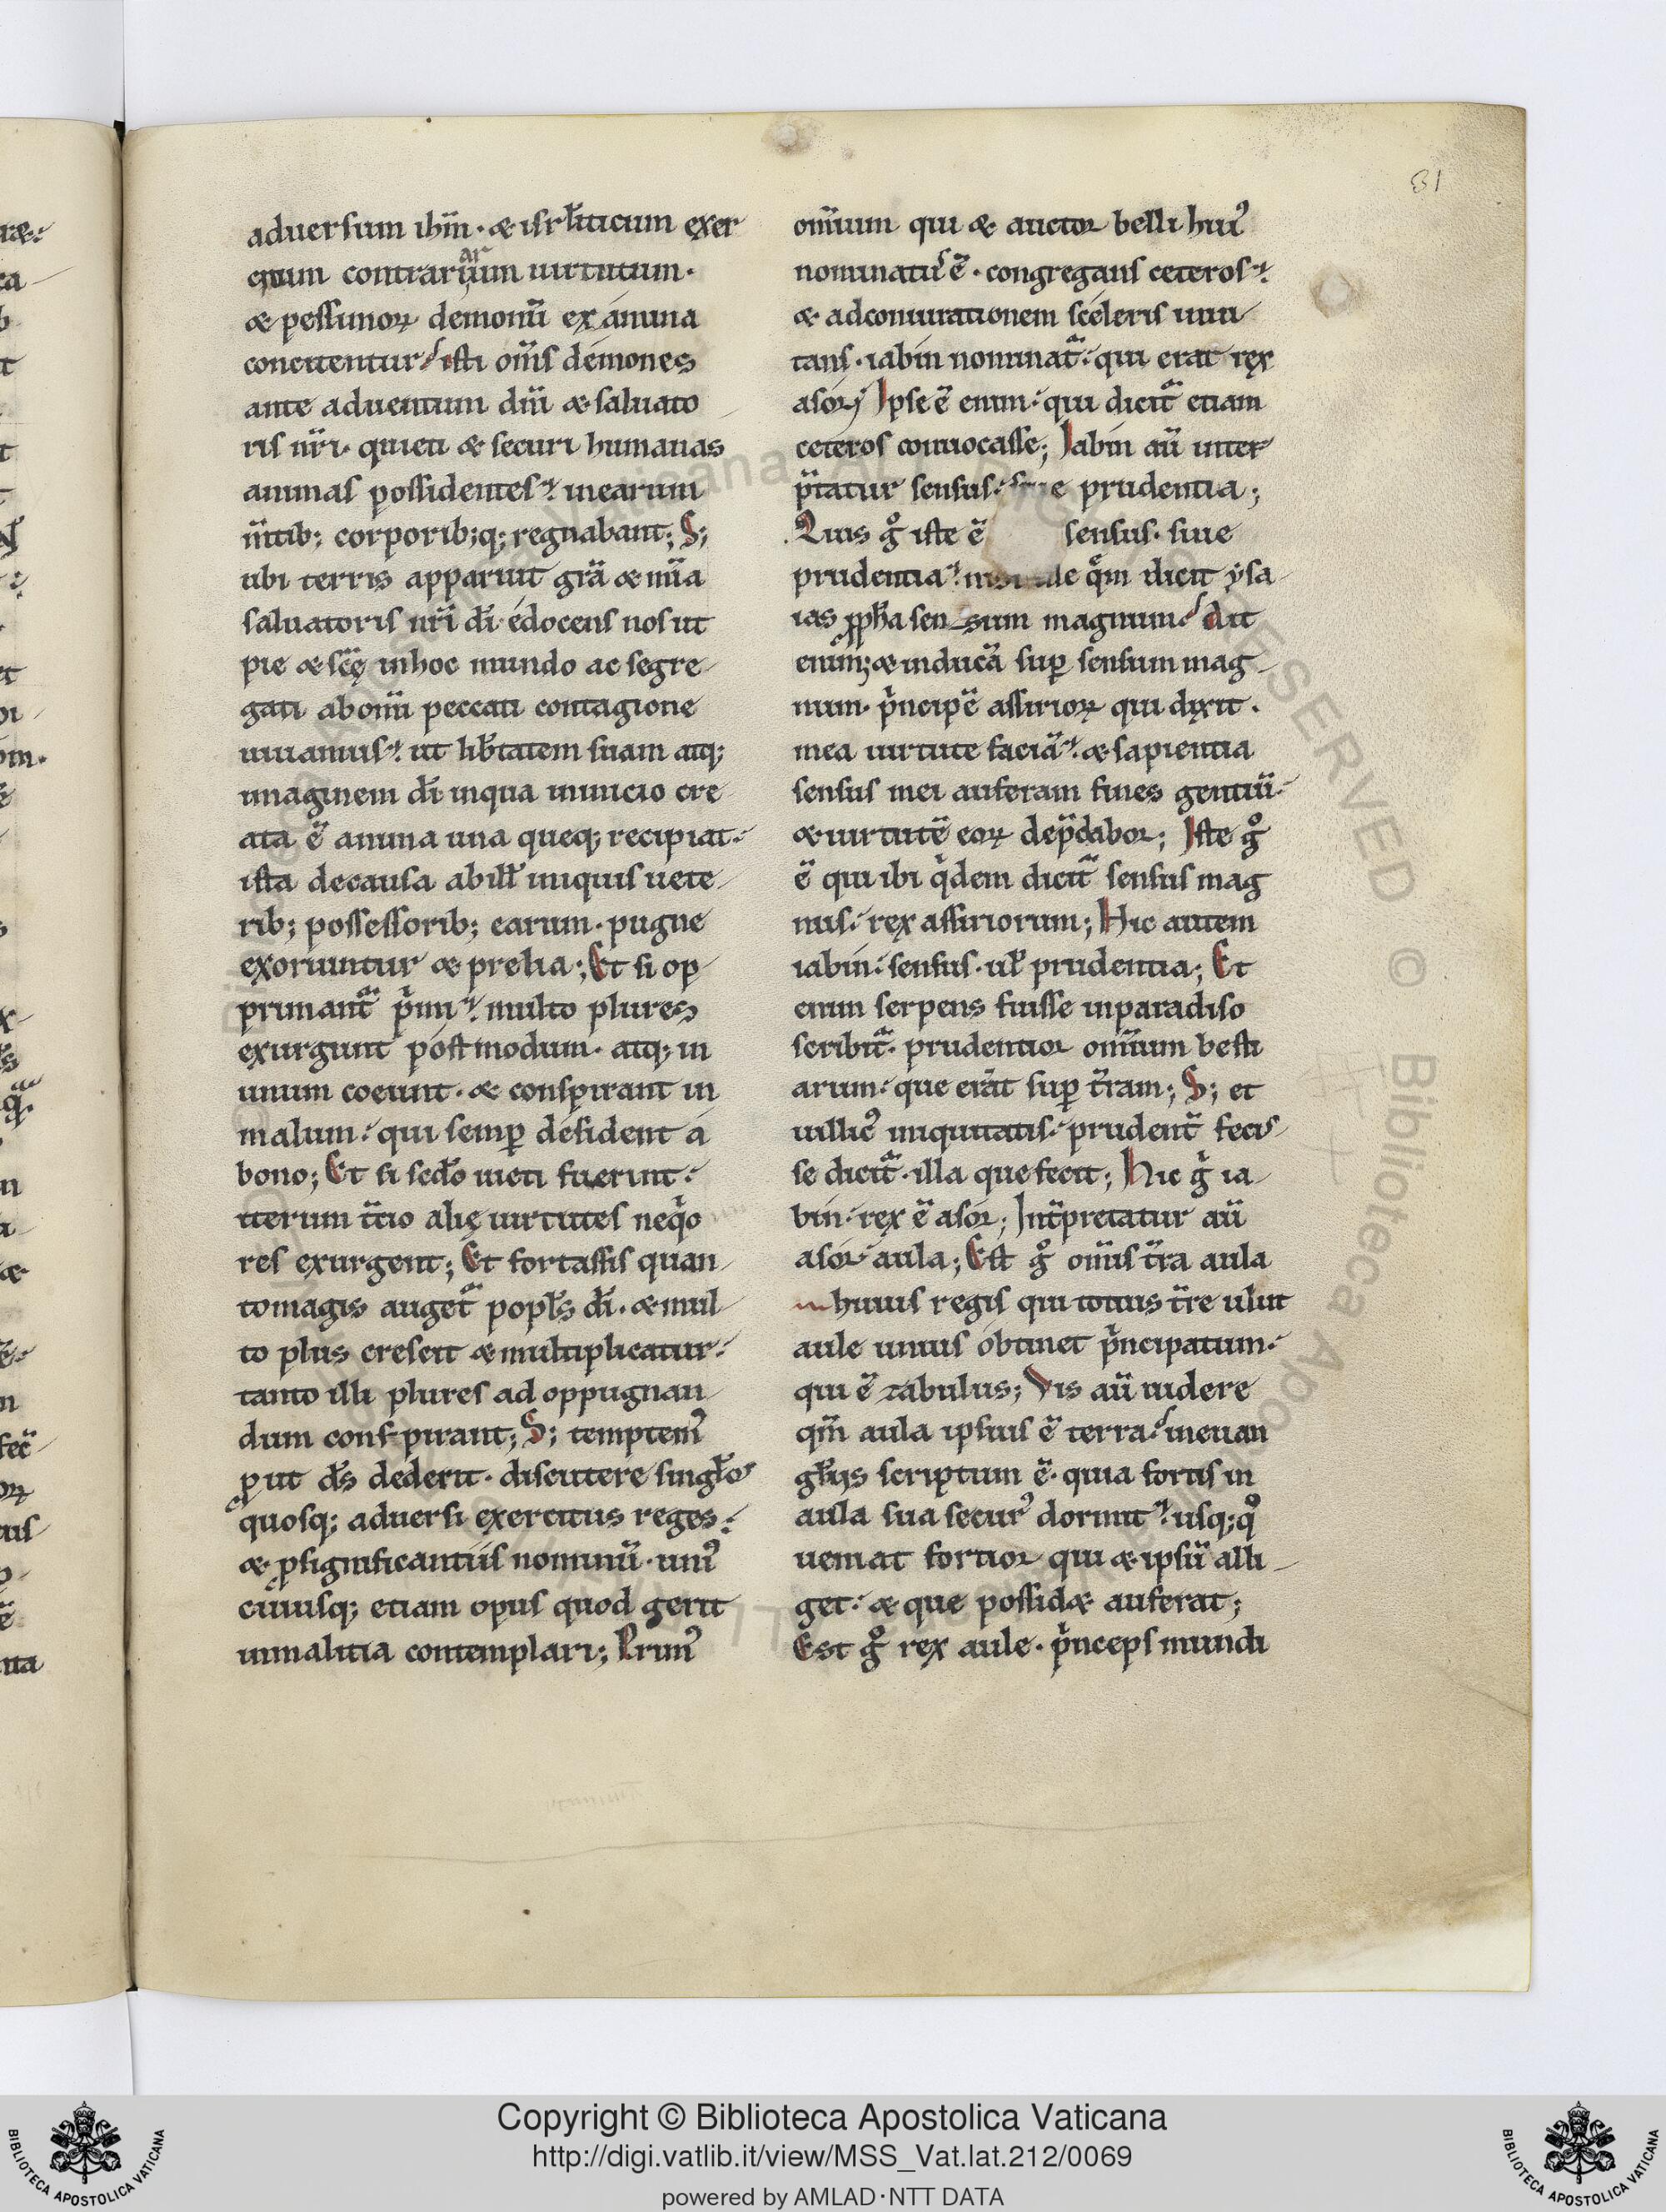 31
aduersum ihm̅· & isrl̅iticum exer
citum contrariarum uirtutum·
& pessimoꝝ demonu̅ ex anima
concitentur? isti om̅s demones
ante aduentum dn̅i & saluato
ris nr̅i· quieti & securi humanas
animas possidentes? inearum
m̅tib; corporib;q; regnabant; S;
ubi terris apparuit gr̅a & mi̅a
saluatoris nr̅i di̅ edocens nos ut
pie & sc̅ę inhoc mundo ac segre
gati abom̅i peccati contagione
uiuamus? ut lib̅tatem suam atq;
imaginem di̅ inqua inticio cre
ata e̅ anima una queq; recipiat·
ista decausa abill̅ iniquis uete
rib; possessorib; earum· pugne
exoriuntur & prelia; Et si op
primant᷑ p̍mi? multo plures
exurgunt postmodum· atq; in
unum coeunt· & conspirant in
malum· qui semp̲ desident a
bono; Et si sedo̅ uicti fuerint·
iterum t̅cio alię uirtutes neq̍o
res exurgent; Et fortassis quan
tomagis auget᷑ popl̅s di̅· & mul
to plus crescit & multiplicatur·
tanto illi plures ad oppugnan
dum conspirant; S; temptemꝰ
ꝓut ds̅ dederit· discutere singl̅os
quosq; aduersi exercitus reges·
& ꝓsignificantiis nominu̅· uniꝰ
cuiusq; etiam opus quod gerit
inmalitia contemplari; Primꝰ
om̅ium qui & auctor belli huiꝰ
nominatus e̅· congregans ceteros?
& adconiurationem sceleris inui
tans· iabin nominat᷑· qui erat rex
asor; Ipse e̅ enim· qui dicit᷑ etiam
ceteros conuocasse; Iabin au̅ inter
p̅tatur sensus· siue prudentia;
Quis gͦ iste e̅ sensus· siue
prudentia? ille qͤm dicit ysa
ias ꝓph̅a sensum magnum? Ait
enim; & induca̅ sup̲ sensum mag
num· p̍ncipe̅ assirioꝝ qui dixit·
mea uirtute facia̅? & sapientia
sensus mei auferam fines gentiu̅·
& uirtute̅ eoꝝ dep̅dabor; Iste gͦ
e̅ qui ibi q̍dem dicit᷑ sensus mag
nus· rex assiriorum; Hic autem
iabin· sensus· ul̅ prudentia; Et
enim serpens fuisse inparadiso
scribit᷑· prudentior om̅ium besti
arum· que erat sup̲ t̅ram; S; et
uillicꝰ iniquitatis· prudent᷑ fecis
se dicit᷑· illa que fecit; Hic g̍ ia
bin· rex e̅ asor; Int̅pretatur au̅
asor· aula; Est gͦ om̅is t̅ra aula
huius regis qui totius t̅re uelut
aule unius obtinet p̍ncipatum·
qui e̅ zabulus; Vis au̅ uidere
qm̅ aula ipsius e̅ terra? ineuan
gl̅iis scriptum e̅· quia fortis in
aula sua securꝰ dormit? usq;qͦ
ueniat fortior qui & ipsu̅ alli
get· & que possid& auferat;
Est gͦ rex aule· p̍nceps mundi
Copyright © Biblioteca Apostolica Vaticana
http://digi.vatlib.it/view/MSS_Vat.lat.212/0069
powered by AMLAD·NTT DATA